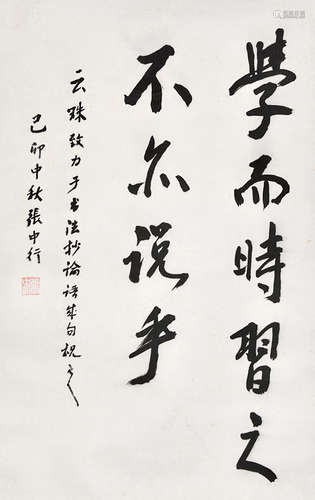 學而時習之
不亦说乎
云殊致力于书法抄論语成句祝之
己卯中秋張中行